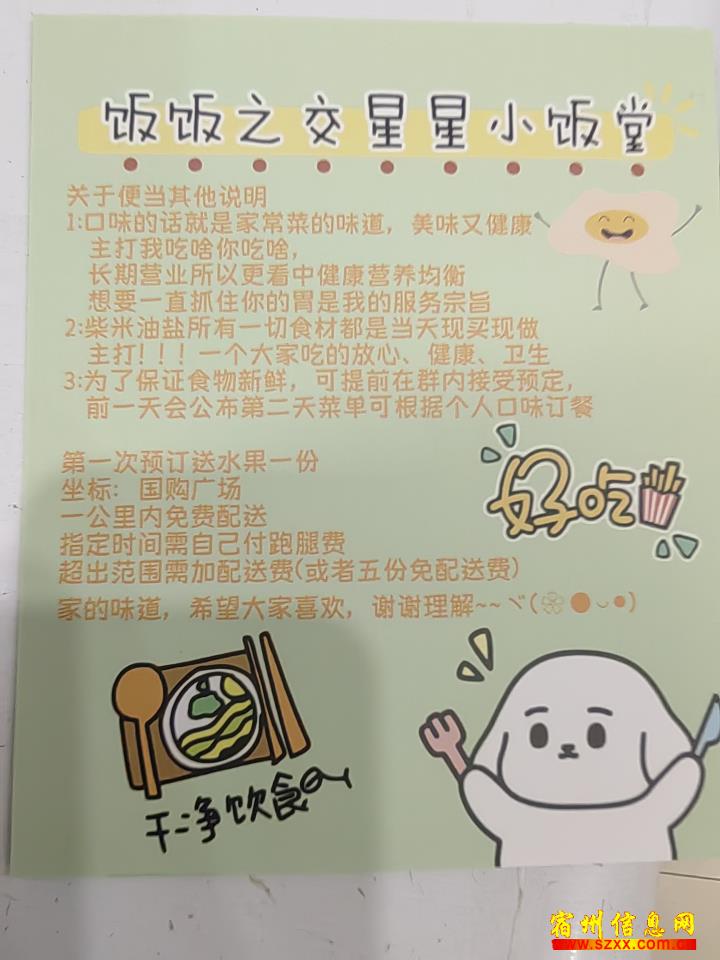 饭饭之交星星小饭堂
关于便当其他说明
1:口味的话就是家常菜的味道，美味又健康
主打我吃啥你吃啥，
长期营业所以更看中健康营养均衡
想要一直抓住你的胃是我的服务宗旨
2:柴米油盐所有一切食材都是当天现买现做
主打！！！一个大家吃的放心、健康、卫生
3:为了保证食物新鲜，可提前在群内接受预定，
前一天会公布第二天菜单可根据个人口味订餐
第一次预订送水果一份
坐标：国购广场
一公里内免费配送
指定时间需自己付跑腿费
超出范围需加配送费(或者五份免配送费)
家的味道，希望大家喜欢，谢谢理解~~ヾ(❀●◡●)
好吃
干净饮食
宿州信息网
www.szxx.com.cn